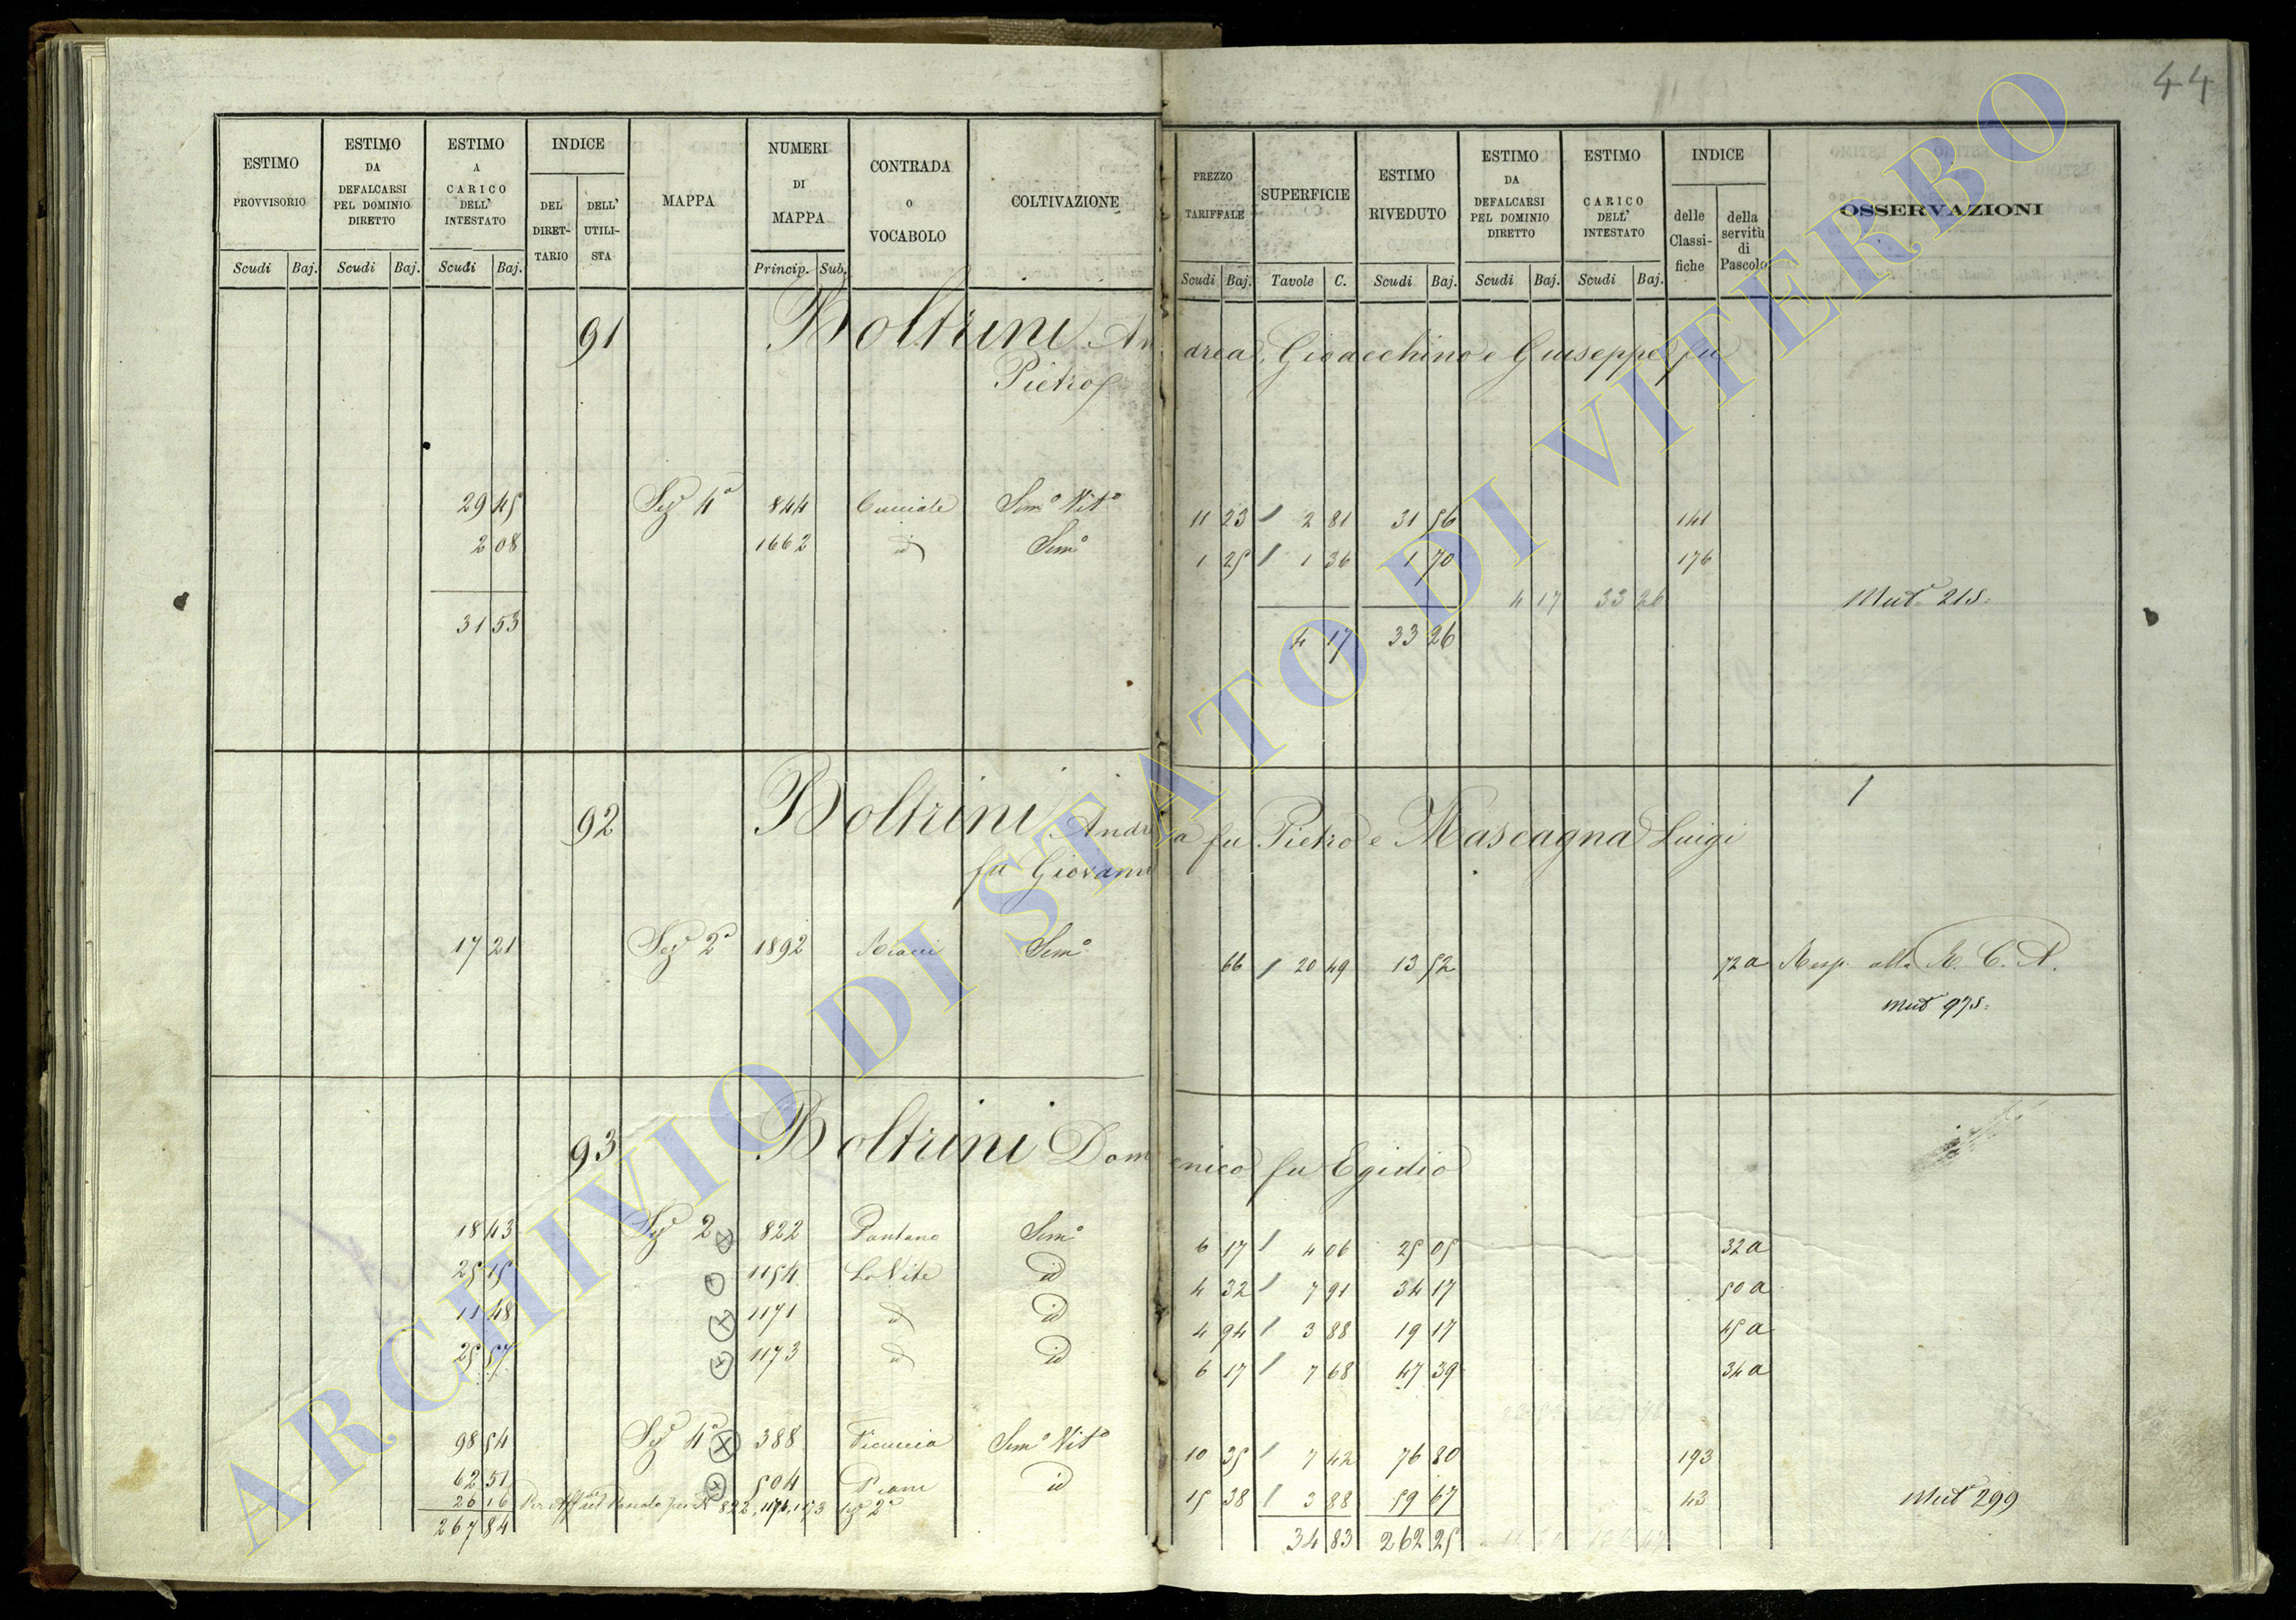 44
ESTIMO PROVVISORIO
ESTIMO DA DEFALCARSI PEL DOMINIO DIRETTO
ESTIMO A CARICO DELL' INTESTATO
INDICE
DEL DIRET-TARIO
DELL' UTILI-STA
MAPPA
NUMERI DI MAPPA
CONTRADA o VOCABOLO
COLTIVAZIONE
PREZZO TARIFFALE
SUPERFICIE
ESTIMO RIVEDUTO
ESTIMO DA DEFALCARSI PEL DOMINIO DIRETTO
ESTIMO CARICO DELL' INTESTATO
INDICE
delle Classi-fiche
della servitù di Pascolo
OSSERVAZIONI
Scudi Baj. Scudi Baj. Scudi Baj. Princip. Sub. Scudi Baj. Tavole C. Scudi Baj. Scudi Baj. Scudi Baj.
91 Boltrini Andrea, Gioacchino e Giuseppe fu
Pietro
29 45 Sez.e 4a 844 Cucciale Sem.o Vit.o 11 23 / 2 81 31 56 141
2 08 1662 id Sem.o 1 25 / 1 36 1 70 176
4 17 33 26 Mut.e 215
31 53 4 17 33 26
92 Boltrini Andrea fu Pietro e Mascagna Luigi
fu Giovanni
17 21 Sez.e 2a 1892 Sem.o 66 / 20 49 13 52 72 a
Mut 975
93 Boltrini Domenico fu Egidio
18 43 Sez.e 2 822 Pantano Sem.o 6 17 / 4 06 25 05 32 a
25 15 1154 La Vite id 4 32 / 7 91 34 17 50 a
11 48 1171 id id 4 94 / 3 88 19 17 45 a
25 57 1173 id id 6 17 / 7 68 47 39 34 a
98 54 Sez.e 4a 388 Ficuccia Sem.o Vit.o 10 35 / 7 42 76 80 193
62 51 504 Piane id 15 38 / 3 88 59 67 43 Mut 299
26 16 Per Aff.to del Pascolo pei N. 822, 1171, 1173 Sez.e 2a
267 84 34 83 262 25
ARCHIVIO DI STATO DI VITERBO